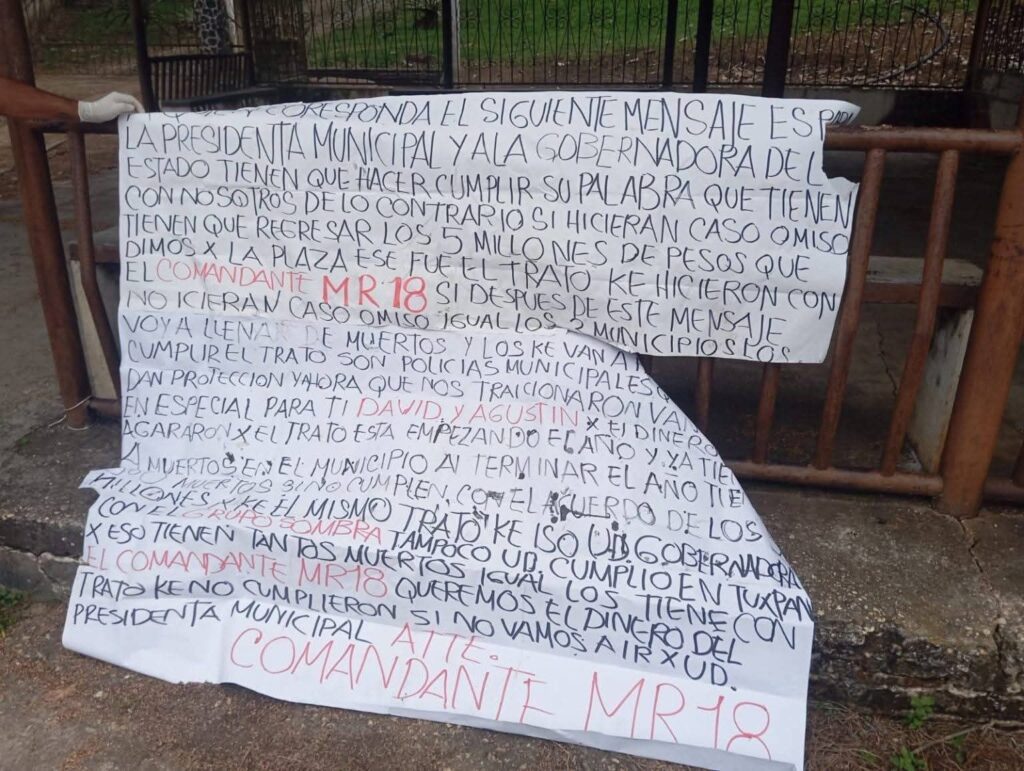 CORESPONDA EL SIGUIENTE MENSAJE ES PARA
LA PRESIDENTA MUNICIPAL Y ALA GOBERNADORA DEL
ESTADO TIENEN QUE HACER CUMPLIR SU PALABRA QUE TIENEN
CON NOSOTROS DE LO CONTRARIO SI HICIERAN CASO OMISO
TIENEN QUE REGRESAR LOS 5 MILLONES DE PESOS QUE
DIMOS X LA PLAZA ESE FUE EL TRATO KE HICIERON CON
EL COMANDANTE MR 18 SI DESPUES DE ESTE MENSAJE
NO ICIERAN CASO OMISO IGUAL LOS MUNICIPIOS LOS
VOY A LLENAR DE MUERTOS Y LOS KE VAN A
CUMPLIR EL TRATO SON POLICIAS MUNICIPALES
DAN PROTECCION Y AHORA QUE NOS TRAICIONARON VAN
EN ESPECIAL PARA TI DAVID Y AGUSTIN X EL DINERO
AGARARON X EL TRATO ESTA EMPEZANDO EL AÑO Y YA TIE
MUERTOS EN EL MUNICIPIO AI TERMINAR EL AÑO TIE
MUERTOS SI NO CUMPLEN CON EL ACUERDO DE LOS
MILLONES X KE EL MISMO TRATO KE ISO UD GOBERNADORA
CON EL GRUPO SOMBRA TAMPOCO UD. CUMPLIO EN TUXPAN
X ESO TIENEN TANTOS MUERTOS IGUAL LOS TIENE CON
EL COMANDANTE MR18 QUEREMOS EL DINERO DEL
TRATO KE NO CUMPLIERON SI NO VAMOS A IR X UD.
PRESIDENTA MUNICIPAL ATTE.
COMANDANTE MR18